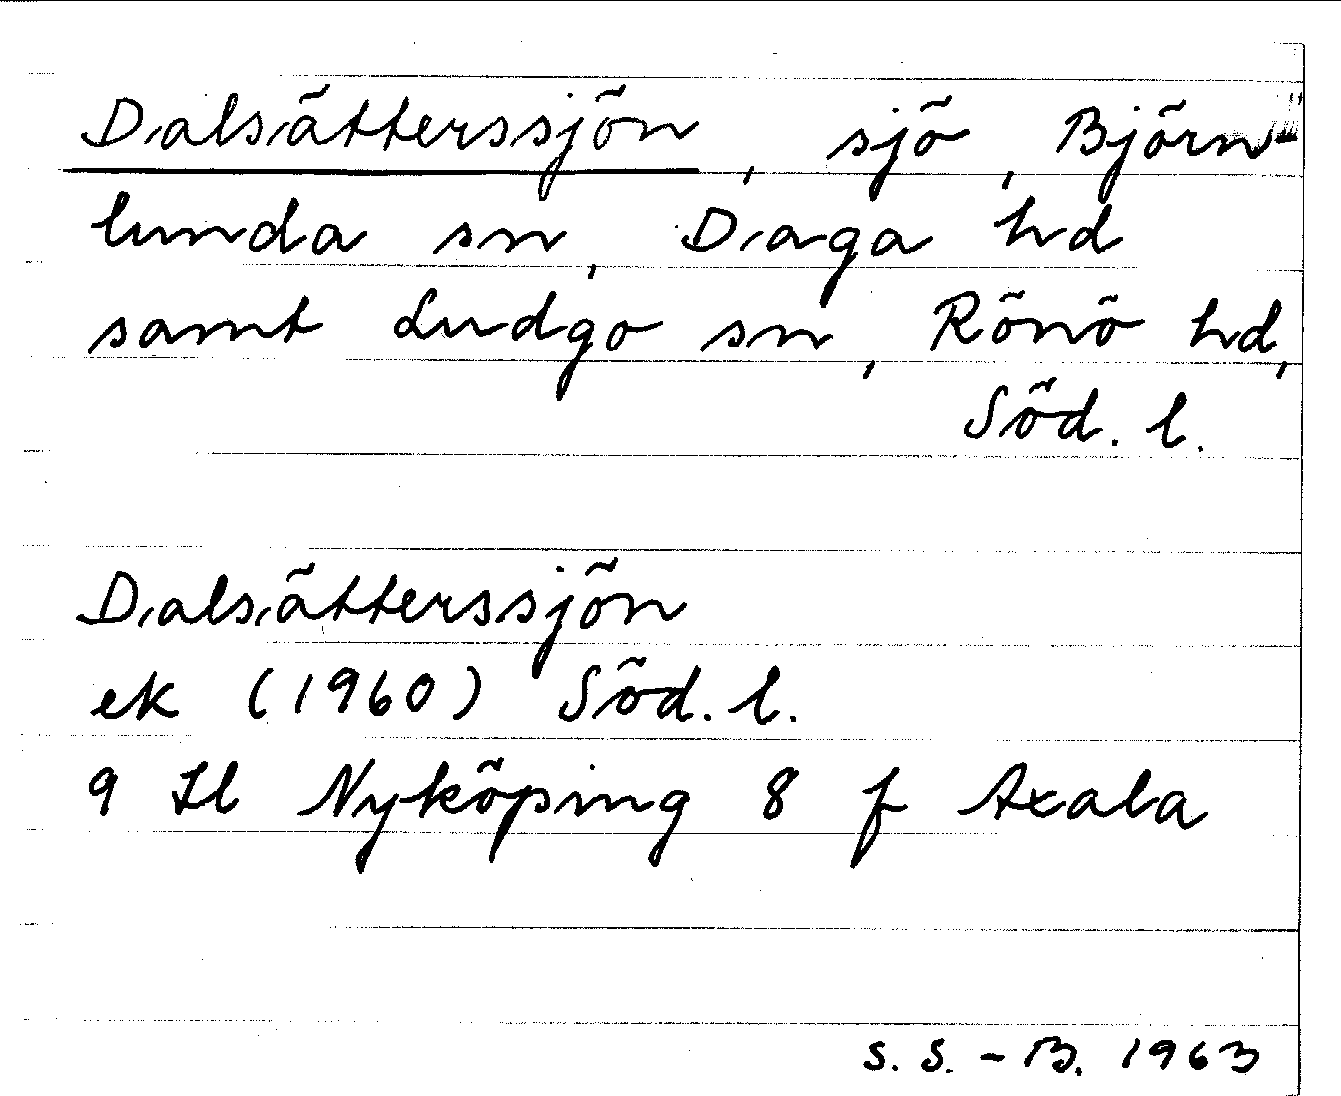 Dalsätterssjön, sjö, Björn-
lunda sn, Daga hd
samt Ludgo sn, Rönö hd,
Söd. l.
Dalsätterssjön
ek (1960) Söd. l.
9 Il Nyköping 8 f Axala
S. S. - B. 1963